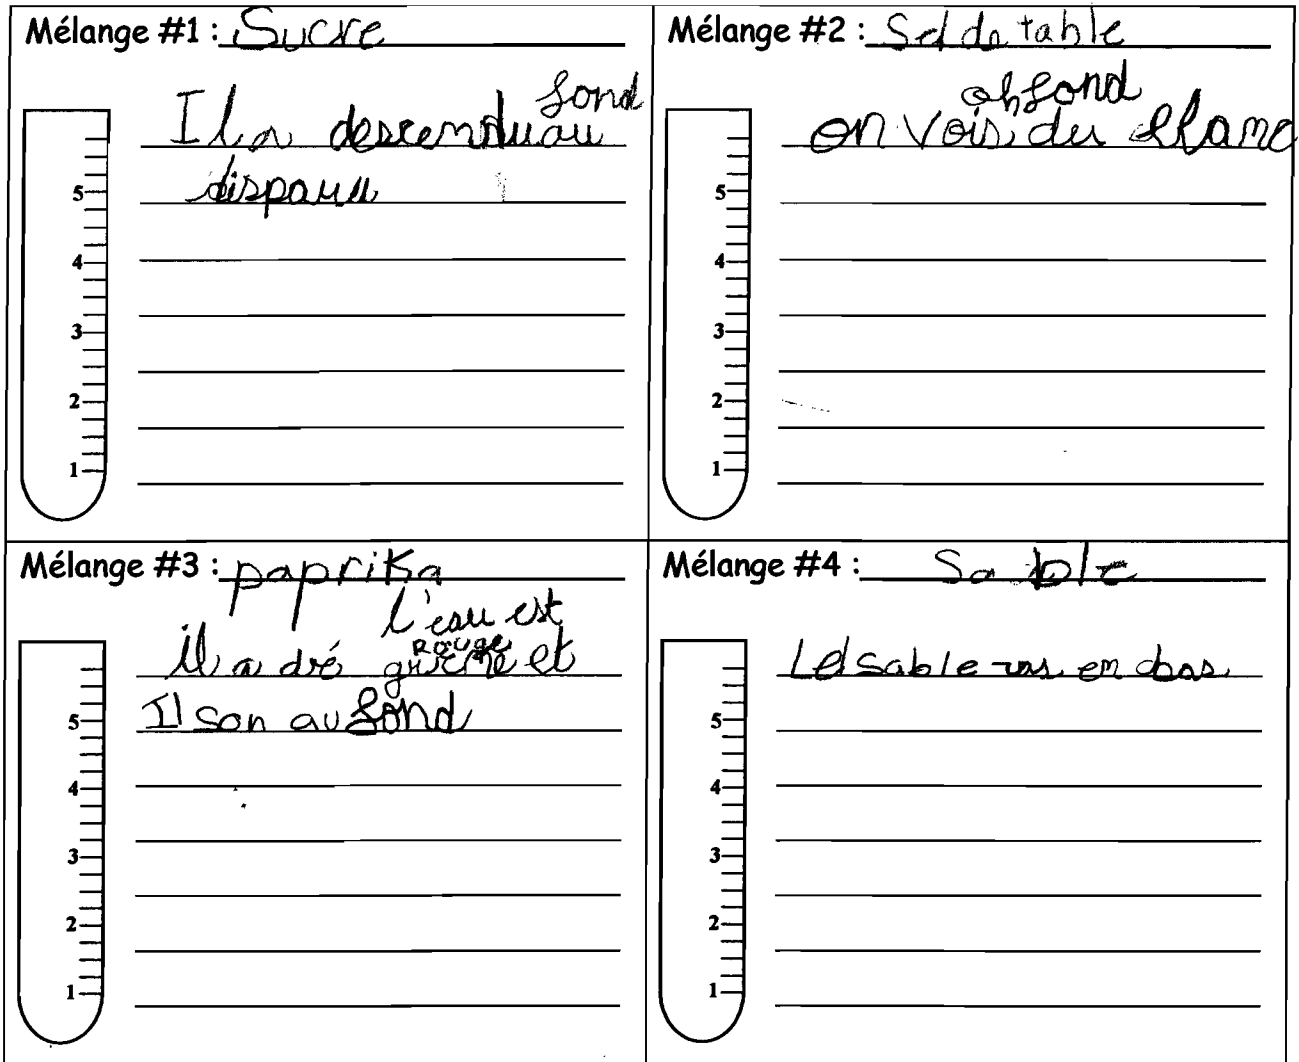 Mélange #1 : Sucre
fond
Il a descendu au
disparu
5
4
3
2
1
Mélange #2 : Sel de table
fond
on vois du blanc
5
4
3
2
1
Mélange #3 : paprika
l'eau est
Rouge
il a et
Il son au fond
5
4
3
2
1
Mélange #4 : Sable
Le sable vas en bas
5
4
3
2
1